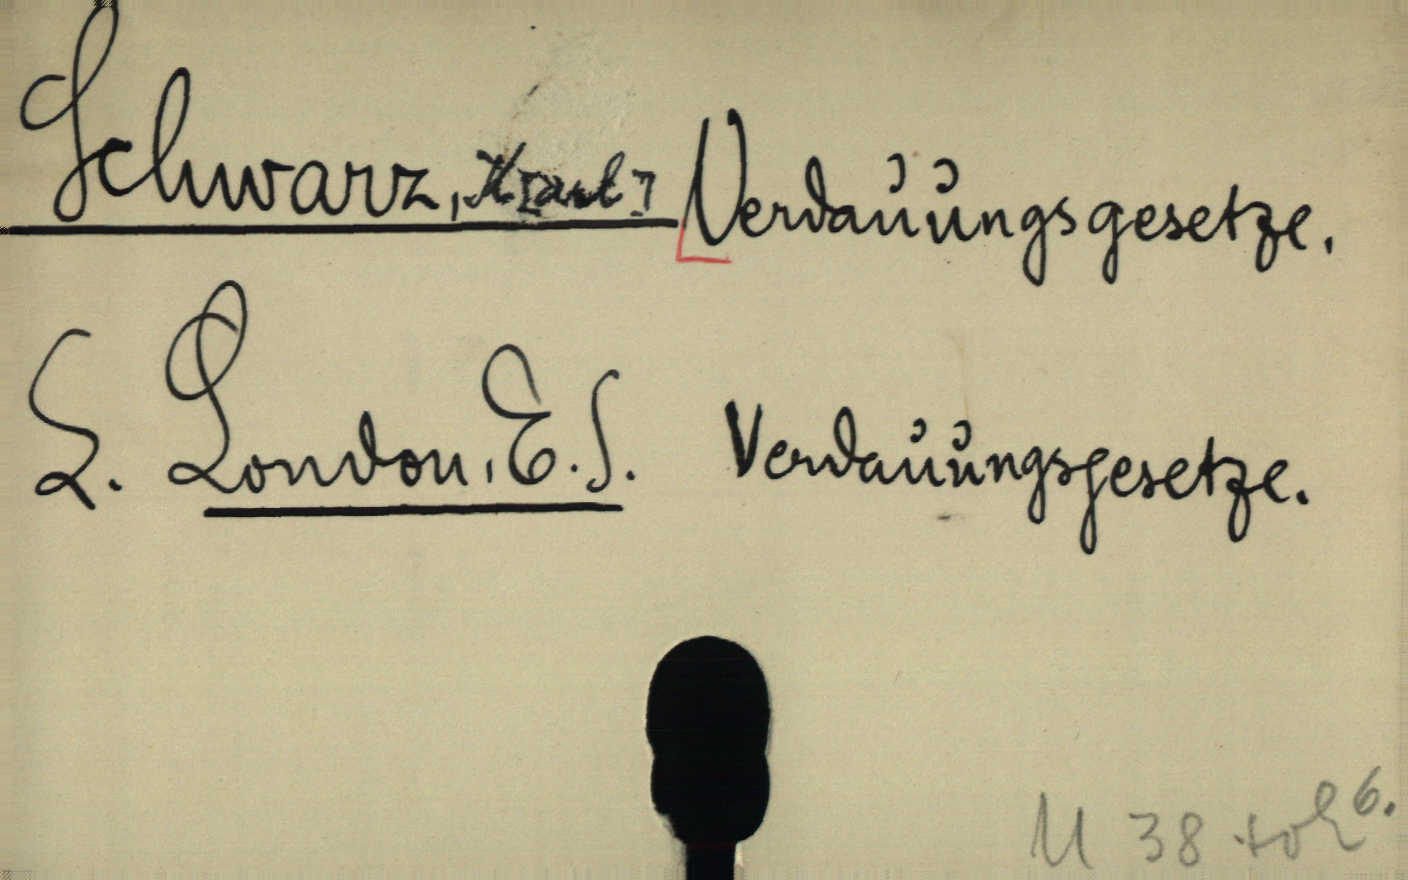 Schwarz, K[arl] Verdauungsgesetze.
S. London, E. S. Verdauungsgesetze.
M 38